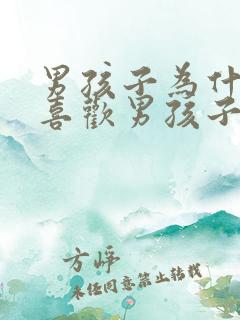 男孩子為什
喜歡男孩子
方崢
未经同意禁止转载